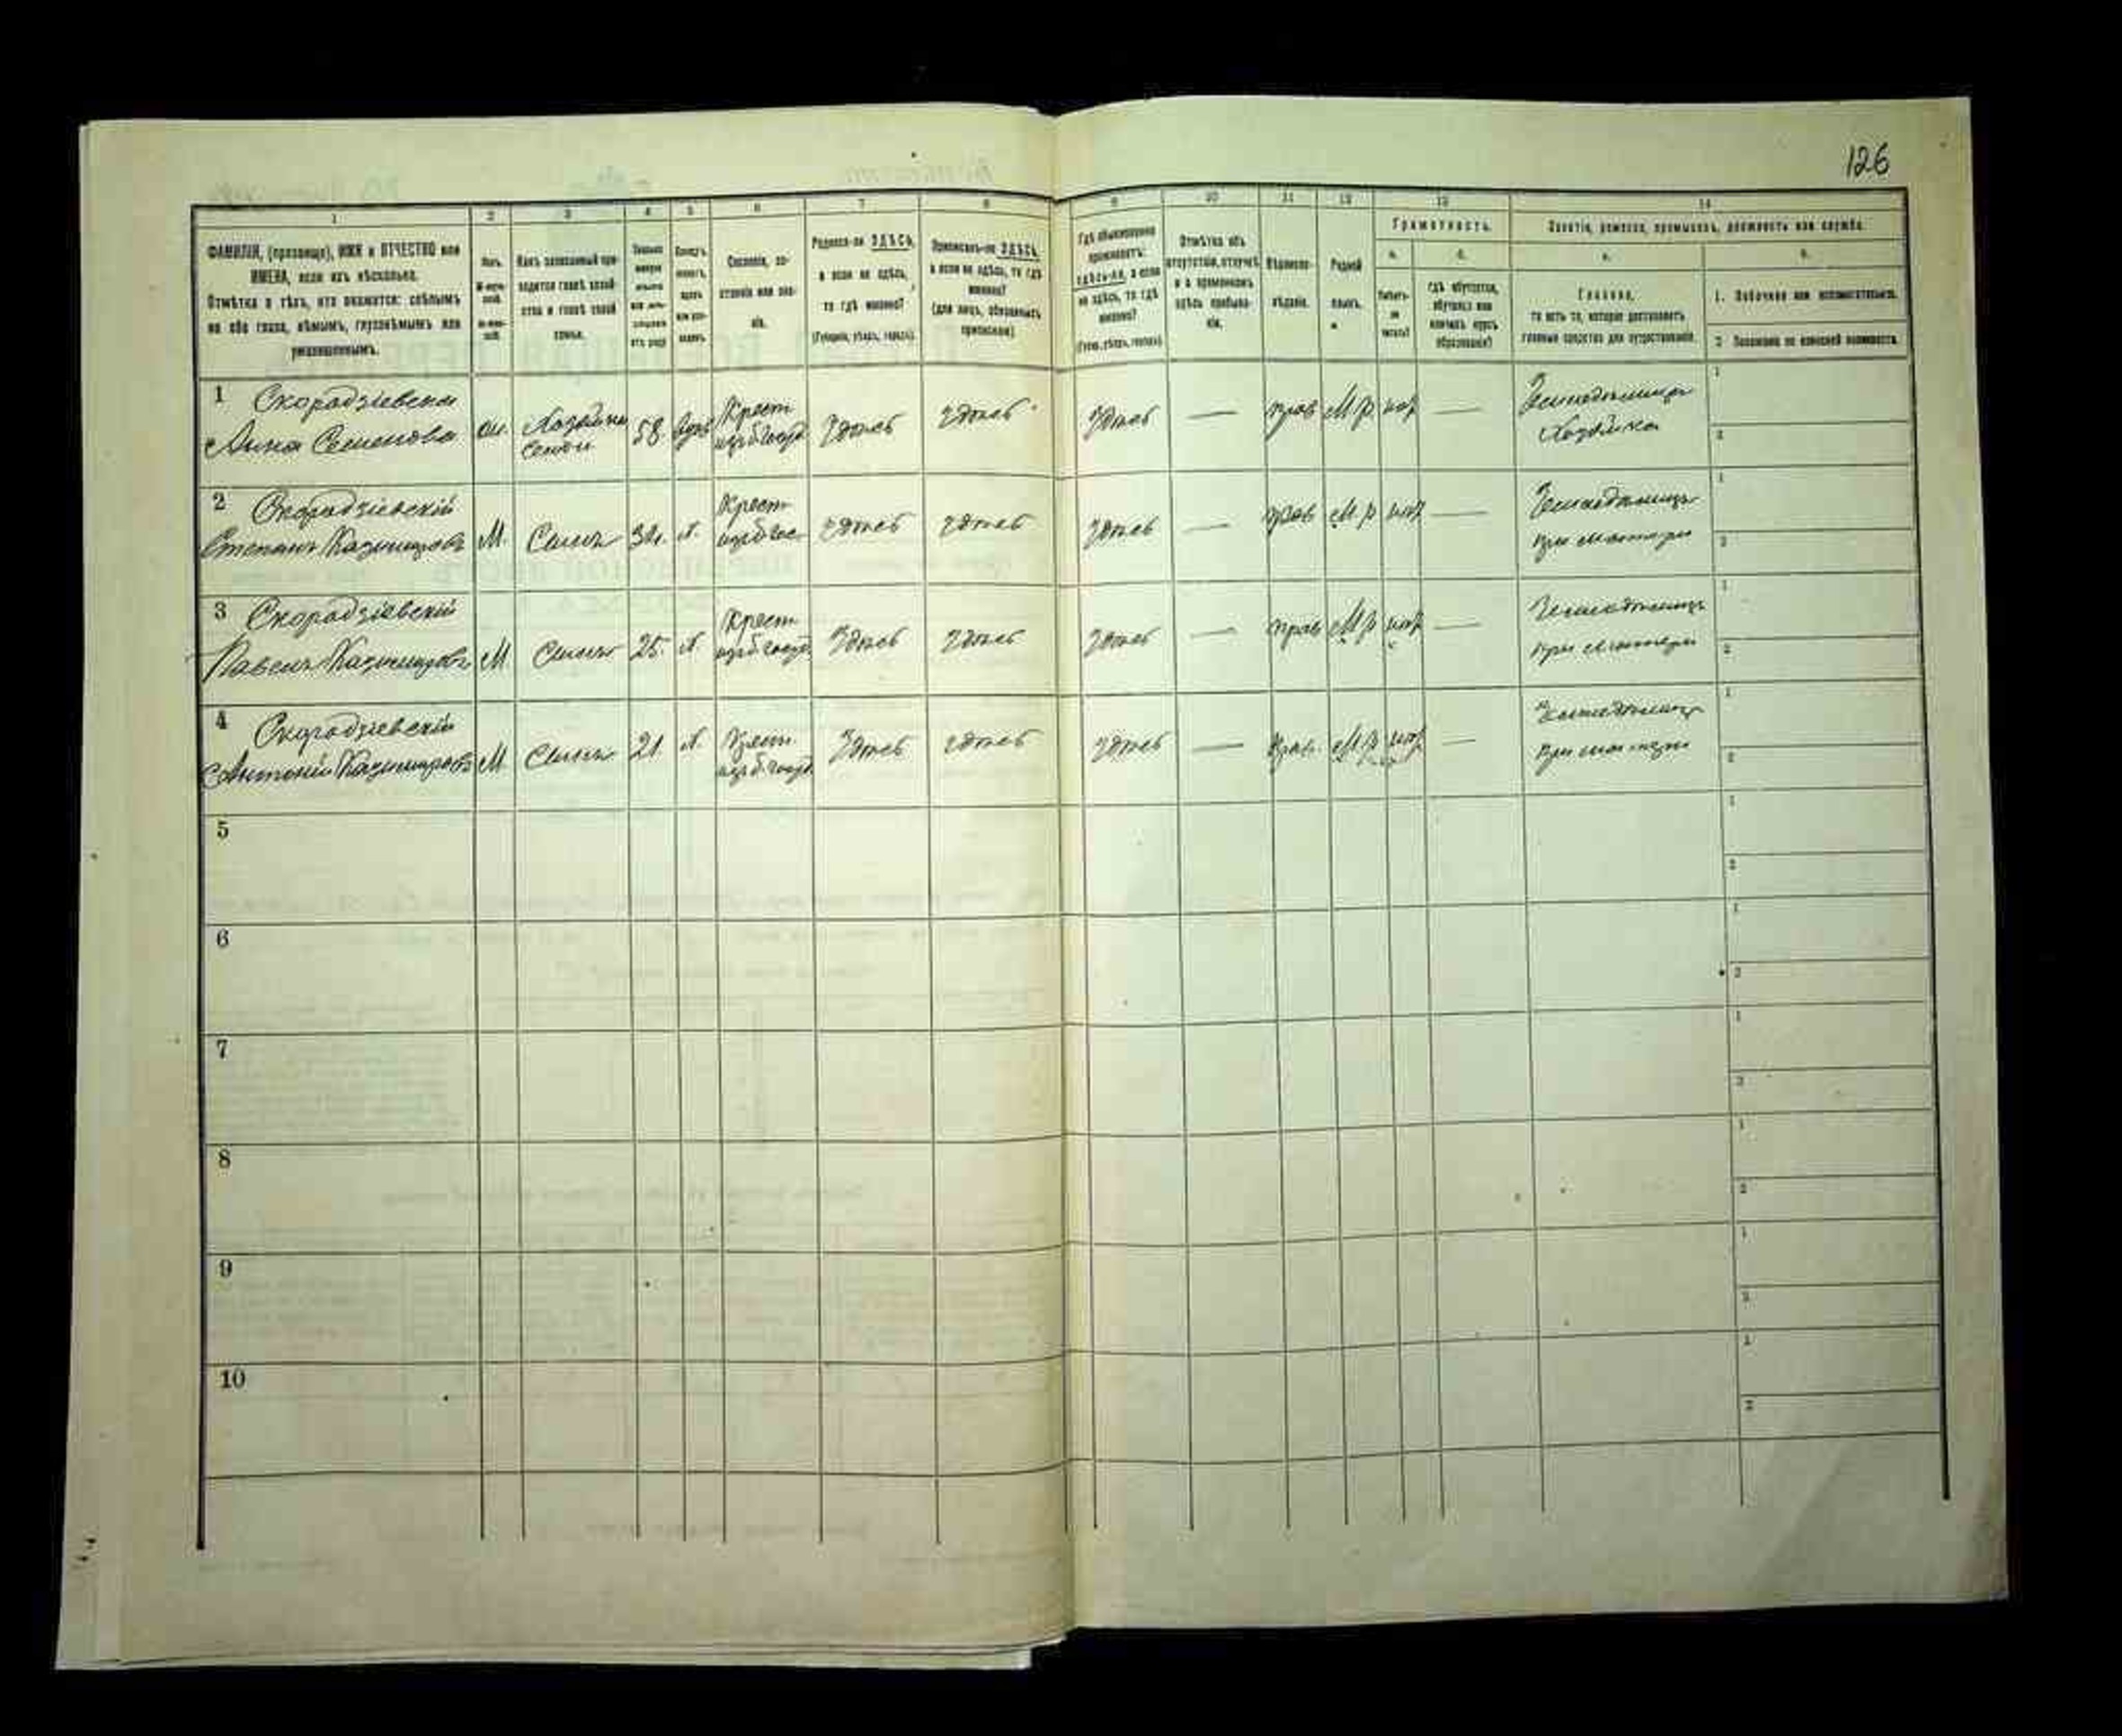 126
1 2 3 4 5 6 7 8 9 10 11 12 13 14
ФАМИЛІЯ, (прозвище), ИМЯ и ОТЧЕСТВО или
ИМЕНА, если ихъ нѣсколько.
Отмѣтка о тѣхъ, кто окажется: слѣпымъ
на оба глаза, нѣмымъ, глухонѣмымъ или
умалишеннымъ.
Полъ.
М-муж-
ской.
Ж-жен-
скій.
Какъ записанный при-
ходится главѣ хозяй-
ства и главѣ своей
семьи.
Сколько
минуло
лѣтъ
отъ роду
Холостъ,
женатъ,
вдовъ
или раз-
веденъ.
Сословіе, со-
стояніе или зва-
ніе.
Родился-ли ЗДѢСЬ,
а если не здѣсь,
то гдѣ именно?
(Губернія, уѣздъ, городъ).
Приписанъ-ли ЗДѢСЬ,
а если не здѣсь, то гдѣ
именно?
(для лицъ, обязанныхъ
припиской)
Гдѣ обыкновенно
проживаетъ:
здѣсь-ли, а если
не здѣсь, то гдѣ
именно?
(Губер., уѣздъ, городъ)
Отмѣтка объ
отсутствіи, отлучкѣ
и о временномъ
здѣсь пребыва-
ніи.
Вѣроиспо-
вѣданіе.
Родной
языкъ.
Грамотность.
а. б.
Умѣетъ-
ли
читать?
гдѣ обучается,
обучался или
кончилъ курсъ
образованія?
Занятіе, ремесло, промыселъ, должность или служба.
а. б.
Главное,
то есть то, которое доставляетъ
главныя средства для существованія.
1. Побочное или вспомогательное.
2 Положеніе по воинской повинности.
1 Скорадзіевская
Анна Семенова
Хозяйка
Семьи
58
Вдов
Крест
изъ б. госуд
Здѣсь
Здѣсь
Здѣсь
—
прав
М р
нѣт
—
Земледѣлица
Хозяйка
1
2
2 Скорадзіевскій
Степанъ Казимировъ
М.
Сынъ
Крест
Здѣсь
Здѣсь
Здѣсь
—
прав
М р
нѣт
—
Земледѣлецъ
при матери
1
2
3 Скорадзіевскій
Павелъ Казимировъ
М
Сынъ
25.
Крест
изъ б. госуд
Здѣсь
Здѣсь
Здѣсь
—
прав
М р
нѣт
—
Земледѣлецъ
при матери
1
2
4 Скорадзіевскій
Антоній Казимировъ
М
Сынъ
21.
Крест
изъ б. госуд
Здѣсь
Здѣсь
Здѣсь
—
прав.
М р
нѣт
—
Земледѣлецъ
при матери
1
2
5
1
2
6
1
2
7
1
2
8
1
2
9
1
2
10
1
2